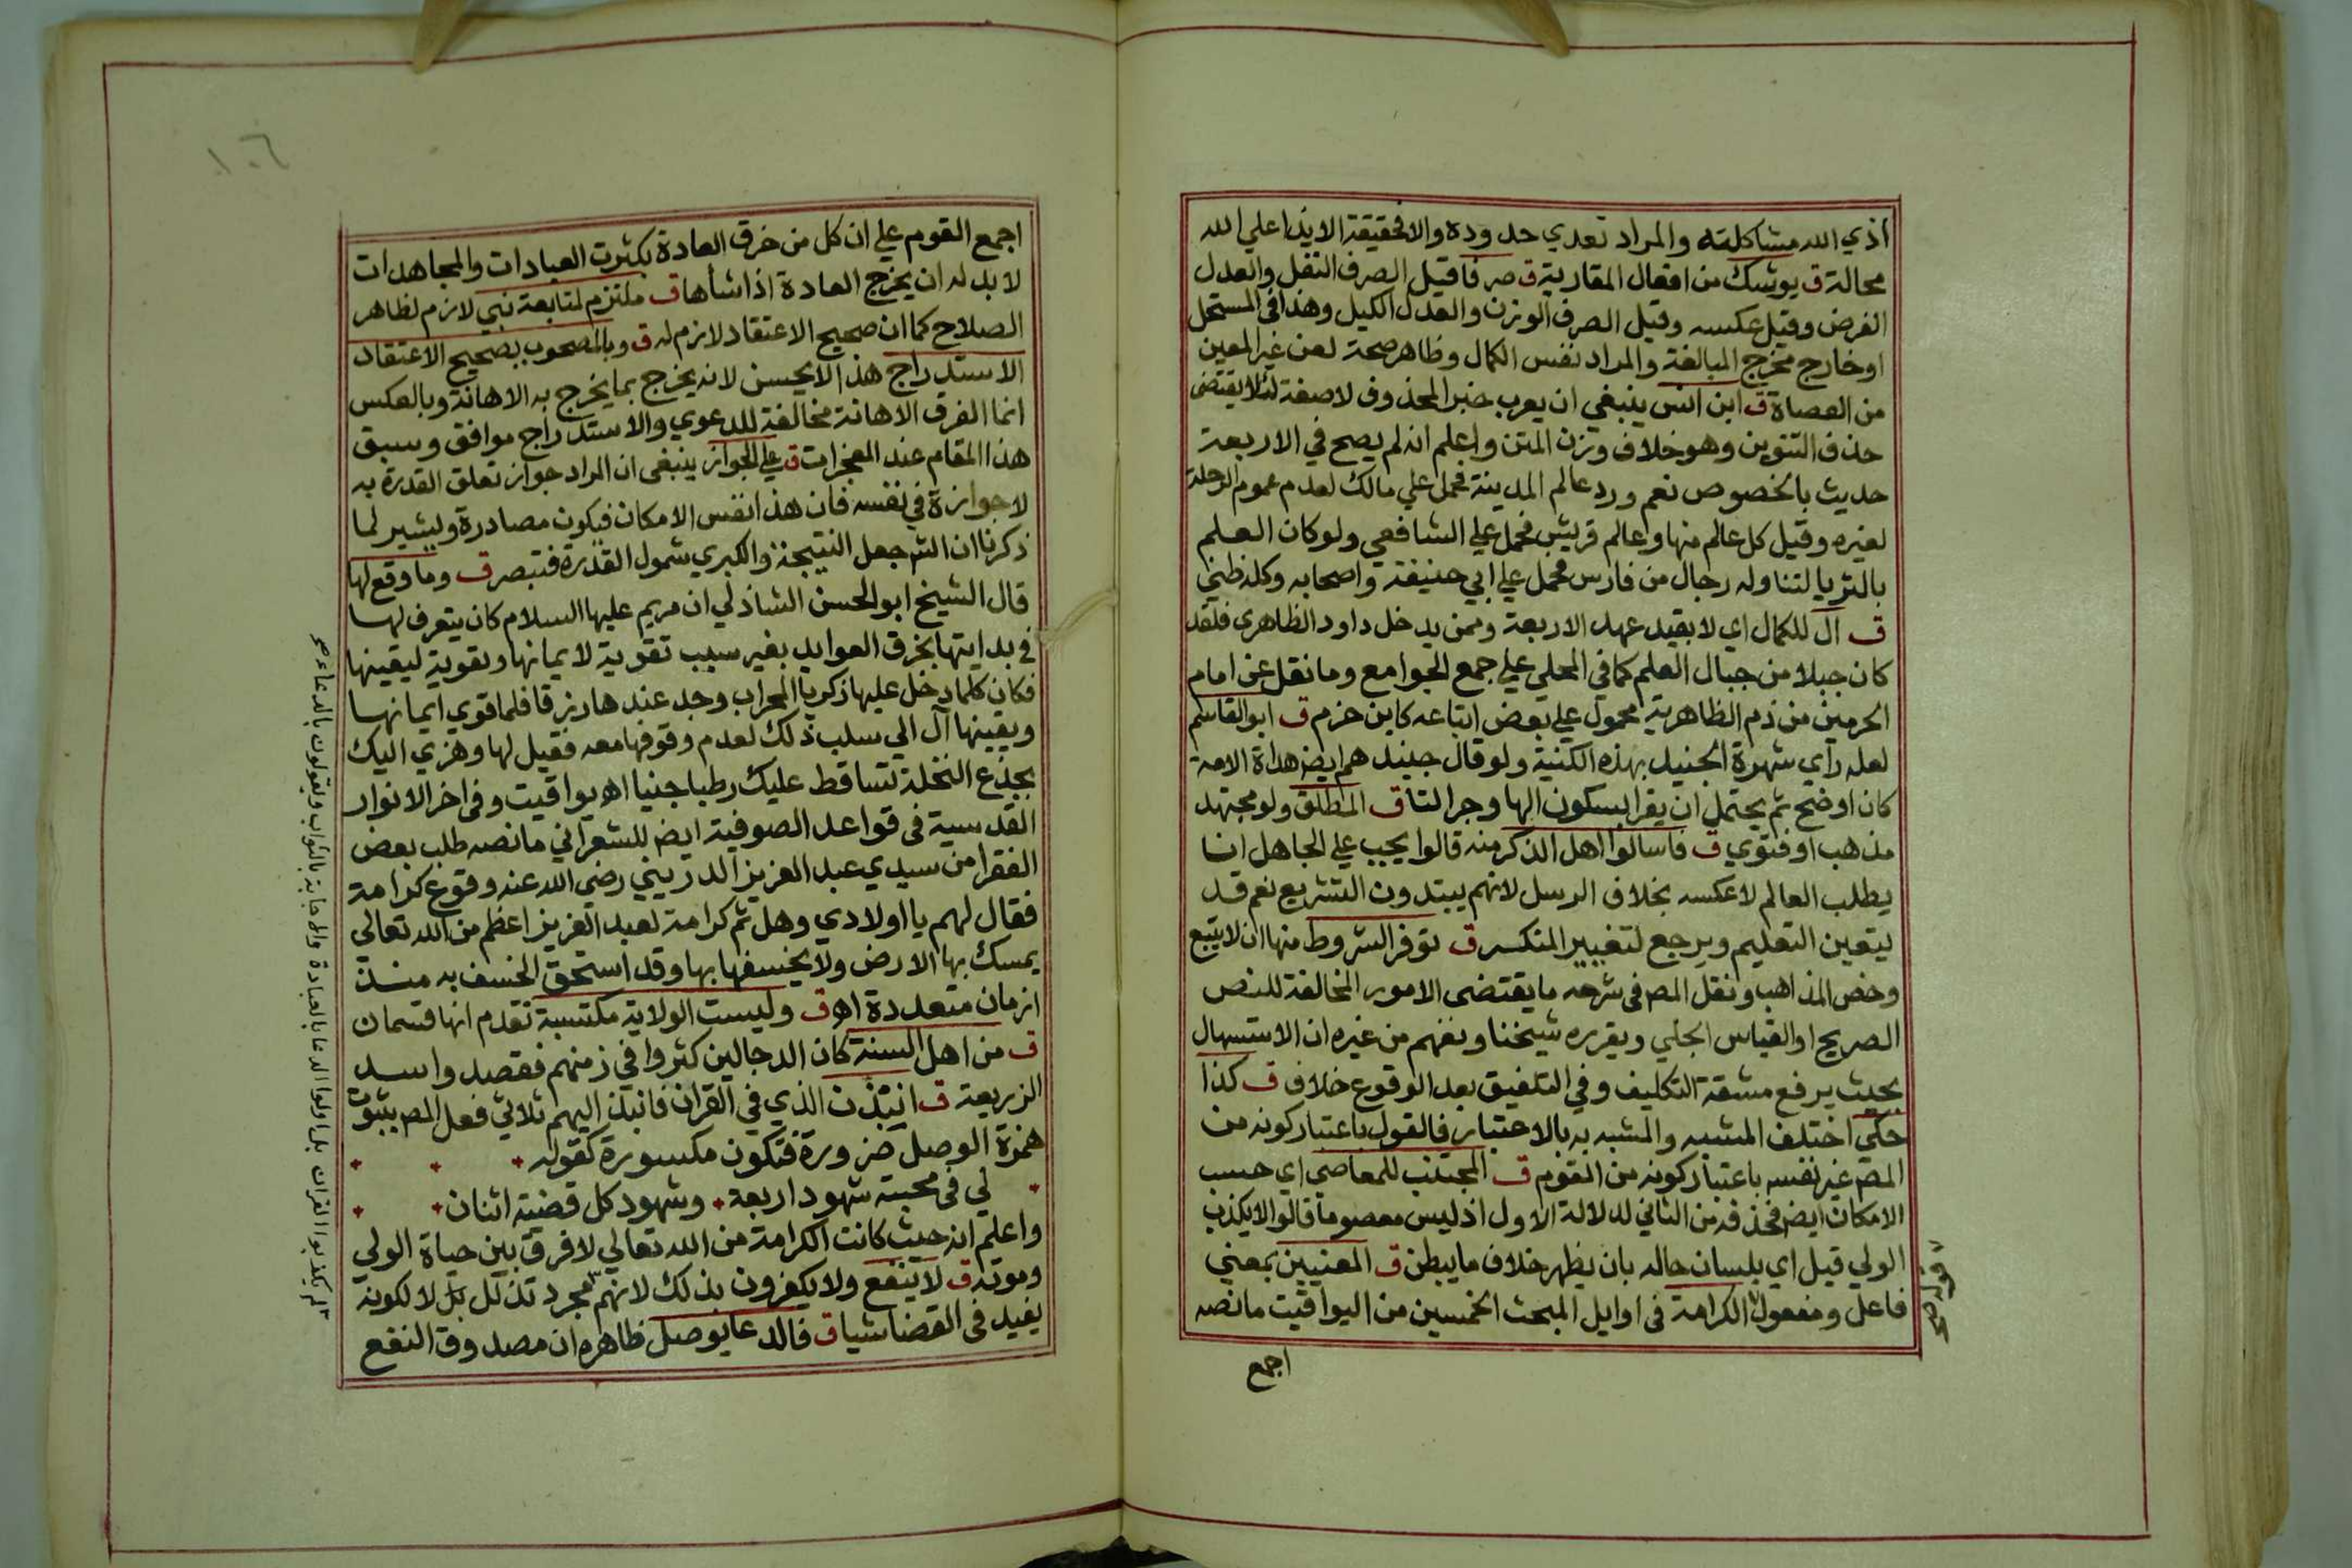 اذي الله مشاكلته والمراد تعدي حدوده والا فحقيقة الايذا علي الله
محالة ق يوشك من افعال المقاربة ق صرفا قيل الصرف النفل والعدل
الفرض وقيل عكسه وقيل الصرف الوزن والعدل الكيل وهذا في المستحل
او خارج مخرج المبالغة والمراد نفس الكمال وظاهر صحة لعن غير المعين
من العصاة ق ابن انس ينبغي ان يعرب خبر المحذوف لا صفة لئلا يقتضي
حذف التنوين وهو خلاف وزن المتن واعلم انه لم يصح في الاربعة
حديث بالخصوص نعم ورد عالم المدينة فحمل علي مالك لعدم عموم الرحلة
لغيره وقيل كل عالم منها وعالم قريش فحمل علي الشافعي ولو كان العلم
بالثريا لتناوله رجال من فارس فحمل علي ابي حنيفة واصحابه وكله ظني
ق ال للكمال اي لا بقيد عهد الاربعة وممن يدخل داود الظاهري فلقد
كان جبلا من جبال العلم كما في المحلي علي جمع الجوامع وما نقل عن امام
الحرمين من ذم الظاهرية محمول علي بعض اتباعه كابن حزم ق ابو القاسم
لعله راي شهرة الجنيد بهذه الكنية ولو قال جنيد هم ايضا هداة الامة
كان اوضح ثم يحتمل ان يقرا بسكون الها وجر التا ق المطلق ولو مجتهد
مذهب او فتوي ق فاسالوا اهل الذكر منه قالوا يجب علي الجاهل انما
يطلب العالم لا عكسه بخلاف الرسل لانهم يبتدون التشريع نعم قد
يتعين التعليم ويرجع لتغيير المنكر ق توفر الشروط منها ان لا يتبع
رخص المذاهب ونقل المصر في شرحه ما يقتضي الامور المخالفة للنص
الصريح او القياس الجلي ويقرره شيخنا ونفهم من غيره ان الاستسهال
بحيث يرفع مشقة التكليف وفي التلفيق بعد الوقوع خلاف ق كذا
حكي اختلف المشبه والمشبه به بالاعتبار فالقول باعتبار كونه من
المصر غير نفسه باعتبار كونه من القوم ق المجتنب للمعاصي اي حسب
الامكان ايضا فحذفه من الثاني لدلالة الاول اذ ليس معصوما قالوا لا يكذب
الولي قيل اي بلسان حاله بان يظهر خلاف ما يبطن ق المعنيين بمعني
فاعل ومفعول الكرامة في اوايل المبحث الخمسين من اليواقيت ما نصه
قوله صح
اجمع
١٠٦
اجمع القوم علي ان كل من خرق العادة بكثرت العبادات والمجاهدات
لا بد له ان يخرج العادة اذا شأها ق ملتزم لمتابعة نبي لازم لظاهر
الصلاح كما ان صحيح الاعتقاد لازم له ق وبالمصحوب بصحيح الاعتقاد
الاستدراج هذا لا يحسن لانه يخرج بما يخرج به الاهانة وبالعكس
انما الفرق الاهانة مخالفة للدعوي والاستدراج موافق وسبق
هذا المقام عند المعجزات ق علي الجواز ينبغي ان المراد جواز تعلق القدرة به
لا جوازة في نفسه فان هذا نفس الامكان فيكون مصادرة ويشير لما
ذكرنا ان الشر جعل النتيجة والكبري شمول القدرة فتبصر ق وما وقع لها
قال الشيخ ابو الحسن الشاذلي ان مريم عليها السلام كان يتعرف لها
في بدايتها بخرق العوايد بغير سبب تقوية لايمانها وتقوية ليقينها
فكان كلما دخل عليها زكريا المحراب وجد عندها رزقا فلما قوي ايمانها
ويقينها آل الي سلب ذلك لعدم وقوفها معه فقيل لها وهزي اليك
بجذع النخلة تساقط عليك رطبا جنيا اهـ يواقيت وفي اخر الانوار
القدسية في قواعد الصوفية ايضا للشعراني ما نصه طلب بعض
الفقرا من سيدي عبد العزيز الدريني رضي الله عنه وقوع كرامة
فقال لهم يا اولادي وهل ثم كرامة لعبد العزيز اعظم من الله تعالي
يمسك بها الارض ولا يخسفها بها وقد استحق الخسف به منذ
ازمان متعددة اهـ ق وليست الولاية مكتسبة تقدم انها قسمان
ق من اهل السنة كان الدجالين كثروا في زمنهم فقصد واسد
الزريعة ق انبذن الذي في القران فانبذ اليهم ثلاثي فعل المصر بثبوت
همزة الوصل ضرورة فتكون مكسورة كقوله
لي في محبته شهود اربعة وشهود كل قضية اثنان
واعلم انه حيث كانت الكرامة من الله تعالي لا فرق بين حياة الولي
وموته ق لا ينفع ولا يكفرون بذلك لانهم مجرد تذلل بل لا لكونه
يفيد في القضا شيا ق فالدعا يوصل ظاهره ان مصدوق النفع
لم يكذبوا القران بل اولوا الدعا بالعبادة والاجابة بالثواب ويقولون بالدعاء صح